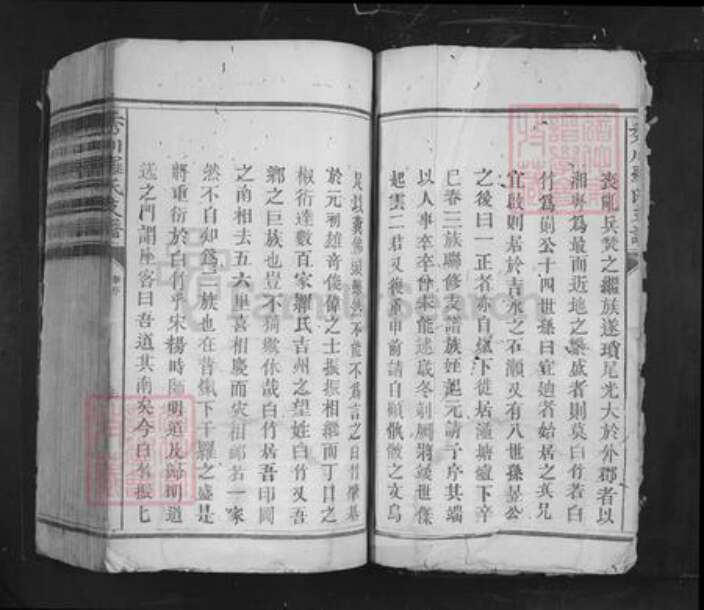 喪亂兵燹之繼族遂瑣尾光大於外郡者以
湘粵為最而近地之繁盛者則莫白竹若白
竹為則公十四世孫曰宜迪者始居之其兄
宜啟則居於吉永之石瀨又有八世孫昜公
之後曰一正者亦自下徙居潼塘下辛
巳春三族聯修支譜族姪起元請予序其端
以人事卒卒曾未能述歲冬剞劂將竣世傑
起雲二君又復重申前請自顧骫骳之文烏
足以糞佛頭然不能不為言之白竹肇基
於元初雄奇俊偉之士振振相繼而丁口之
椒衍達數百家羅氏吉州之望姓白竹又吾
鄉之巨族也豈不猗歟休哉白竹居吾印岡
之南相去五六里喜相慶而災相卹若一家
然不自知為二族也在昔下千羅之盛是
將重衍於白竹乎宋楊時師明道及歸明道
送之門謂座客曰吾道其南矣今白竹振七
羅氏支譜